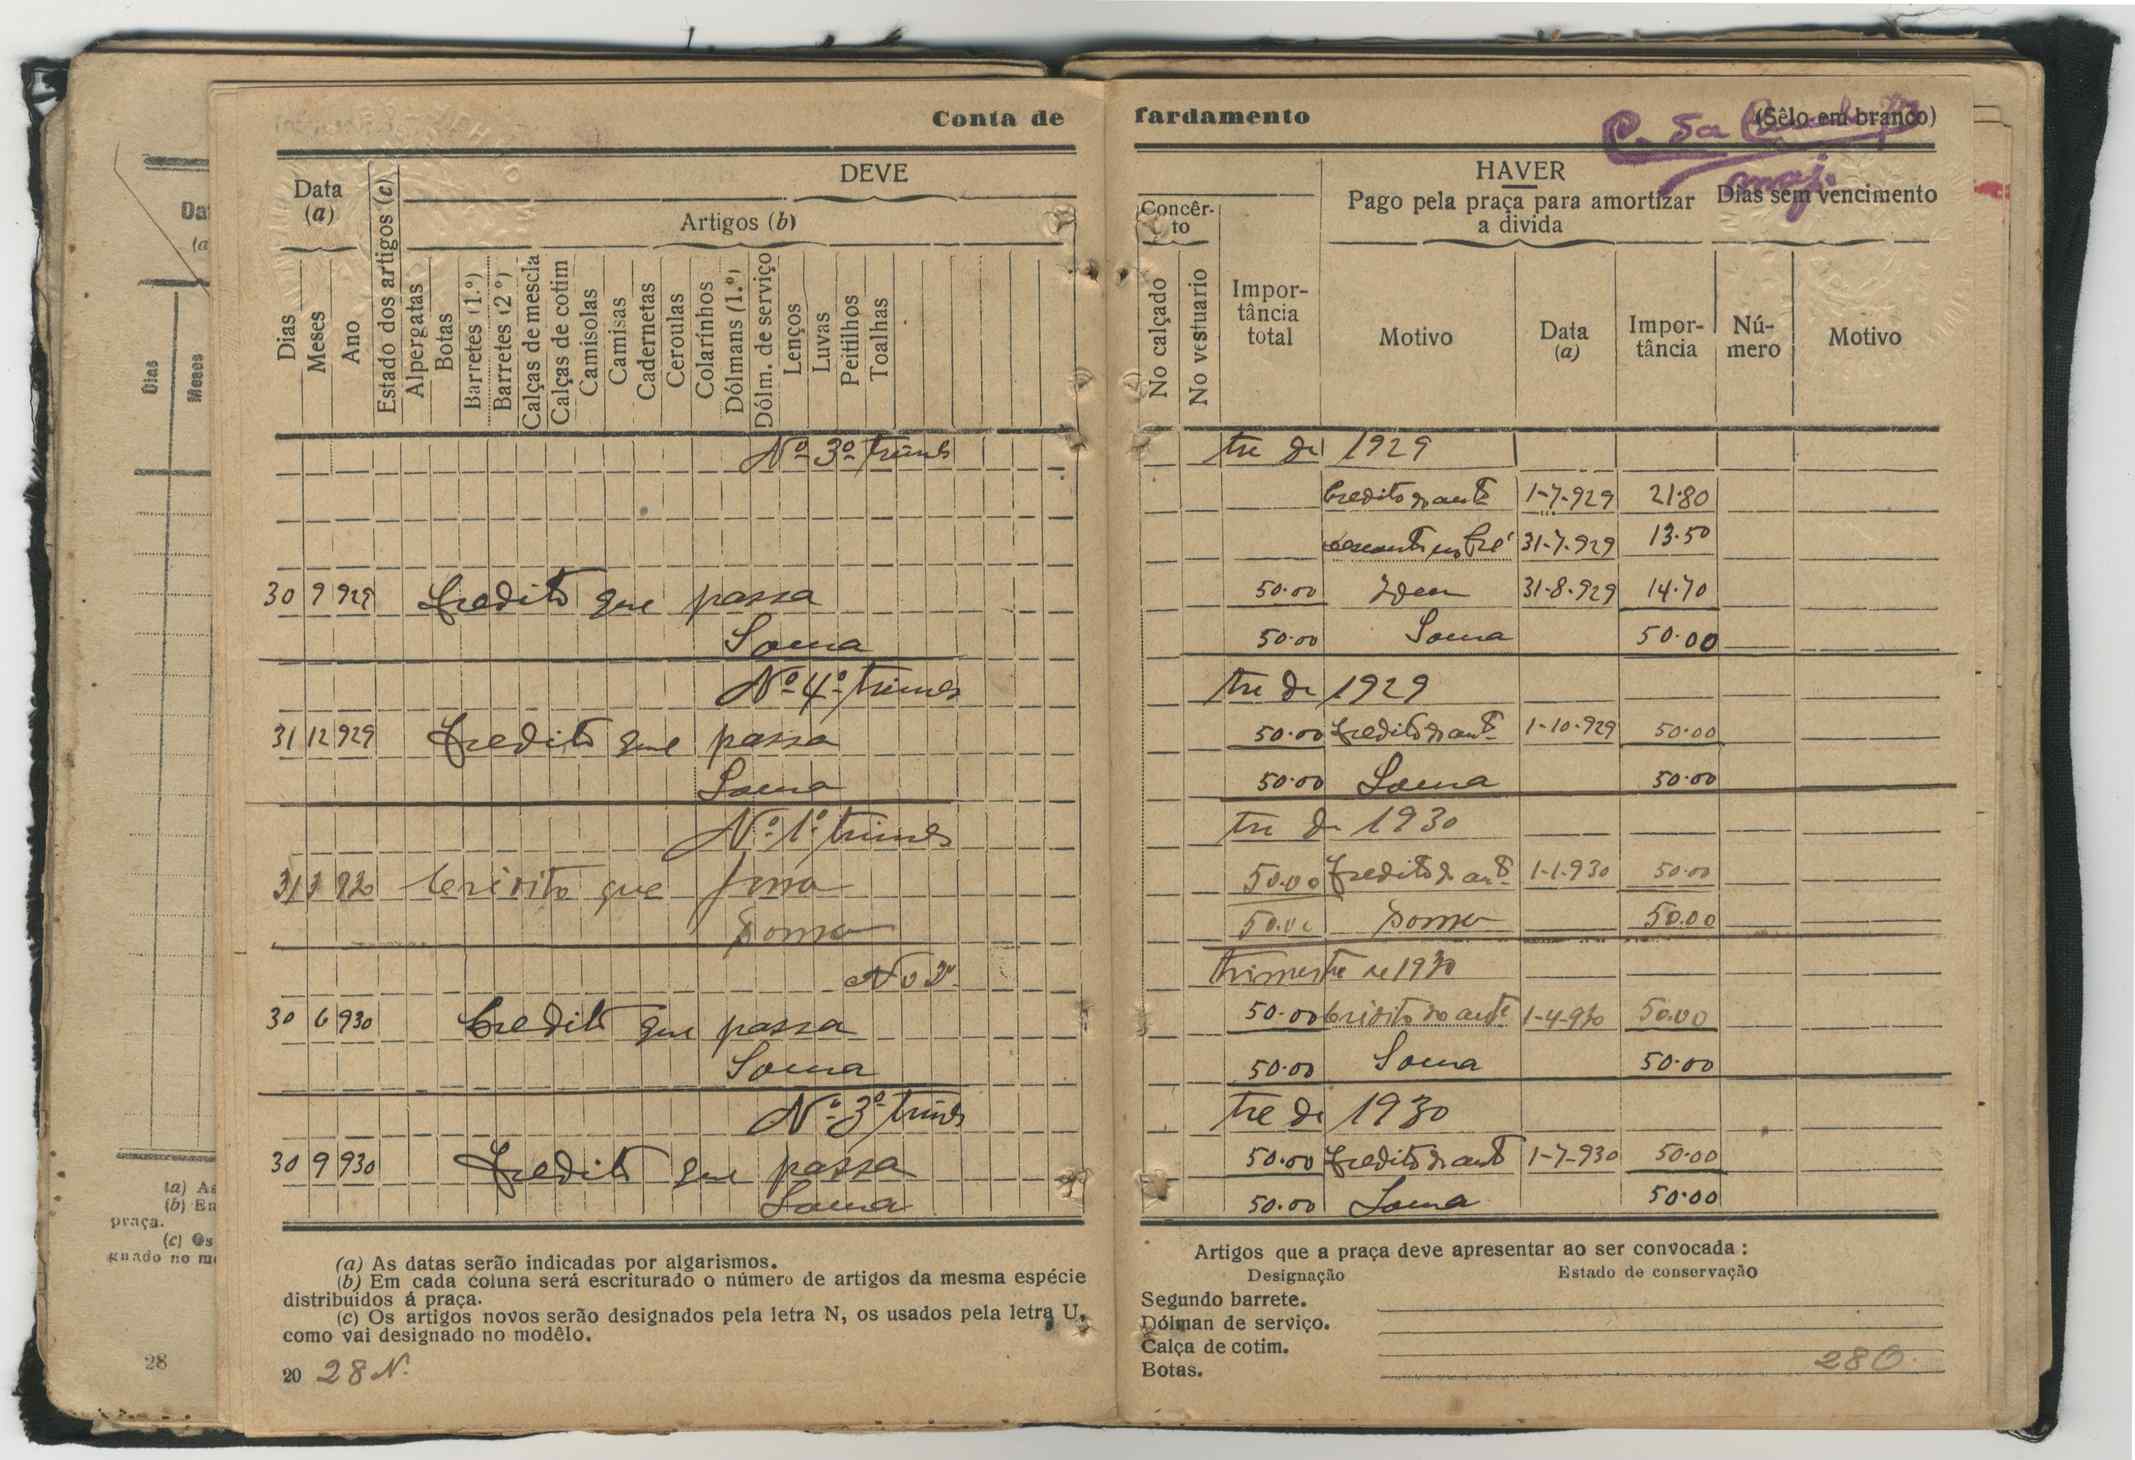 Conta de fardamento
(Sêlo em branco)
maj.
Data
(a)
Estado dos artigos (c)
DEVE
Artigos (b)
Dias
Meses
Ano
Alpergatas
Botas
Barretes (1.º)
Barretes (2.º)
Calças de mescla
Calças de cotim
Camisolas
Camisas
Cadernetas
Ceroulas
Colarinhos
Dólmans (1.º)
Dólm. de serviço
Lenços
Luvas
Peitilhos
Toalhas
Concêr-
to
No calçado
No vestuario
Impor-
tância
total
HAVER
Pago pela praça para amortizar
a divida
Motivo
Data
(a)
Impor-
tância
Dias sem vencimento
Nú-
mero
Motivo
Nº 3º trimes tre de 1929
Credito do antº 1-7-929 21.80
pré 31-7-929 13.50
30 9 929 Credito que passa 50.00 Idem 31-8-929 14.70
Soma 50.00 Soma 50.00
Nº 4º trimes tre de 1929
31 12 929 Credito que passa 50.00 Credito do antº 1-10-929 50.00
Soma 50.00 Soma 50.00
Nº 1º trimes tre de 1930
31 3 930 Credito que passa 50.00 Credito do antº 1-1-930 50.00
Soma 50.00 Soma 50.00
No 2º trimestre de 1930
30 6 930 Credito que passa 50.00 Credito do antº 1-4-930 50.00
Soma 50.00 Soma 50.00
Nº 3º trimes tre de 1930
30 9 930 Credito que passa 50.00 Credito do antº 1-7-930 50.00
Soma 50.00 Soma 50.00
(a) As datas serão indicadas por algarismos.
(b) Em cada coluna será escriturado o número de artigos da mesma espécie
distribuídos á praça.
(c) Os artigos novos serão designados pela letra N, os usados pela letra U,
como vai designado no modêlo.
20 28 N.
Artigos que a praça deve apresentar ao ser convocada:
Designação
Estado de conservação
Segundo barrete.
Dólman de serviço.
Calça de cotim.
Botas.
28 O.
Da
(a
Dias
Meses
(a) As
(b) En
praça.
(c) Os
gnado no mo
28